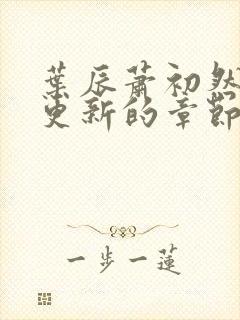 葉辰蕭初然
更新的章節
一步一蓮